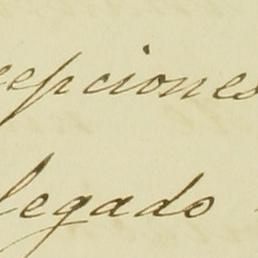 epciones
legado